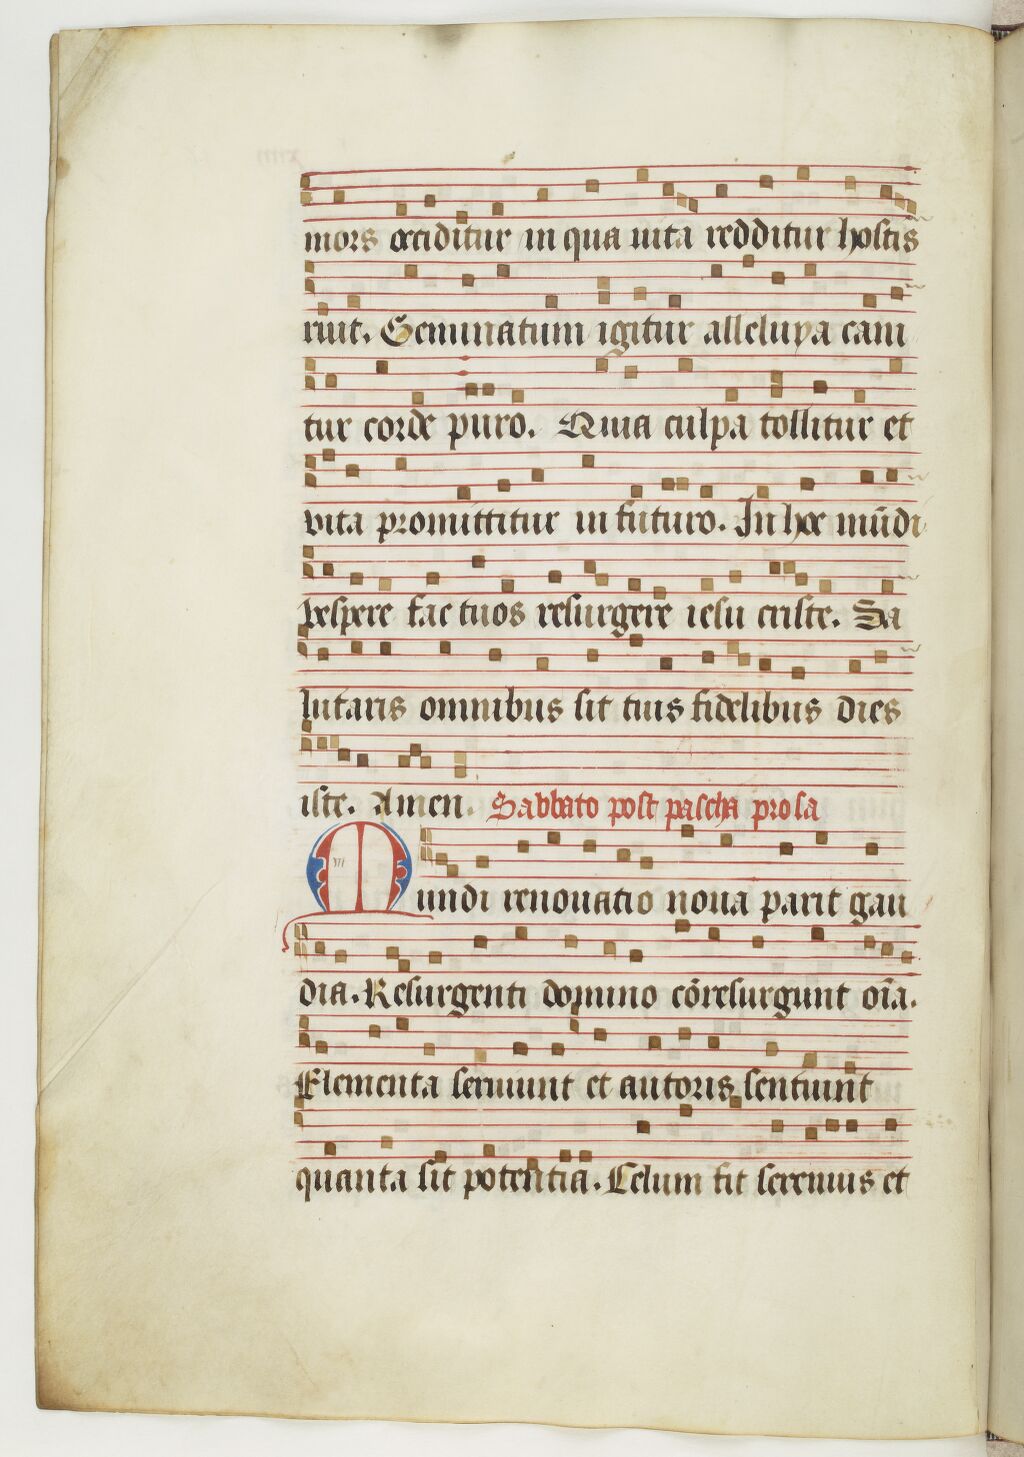 mors occiditur in qua uita redditur hostis
ruit. Geminatum igitur alleluya cani
tur corde puro. Quia culpa tollitur et
vita promittitur in futuro. In hoc mūdi
vespere fac tuos resurgere iesu criste. Sa
lutaris omnibus sit tuis fidelibus dies
iste. Amen. Sabbato post pascha prosa
Mundi renouatio noua parit gau
dia. Resurgenti domino cōresurgunt oīa.
Elementa seruiunt et autoris sentiunt
quanta sit potentia. Celum fit serenius et